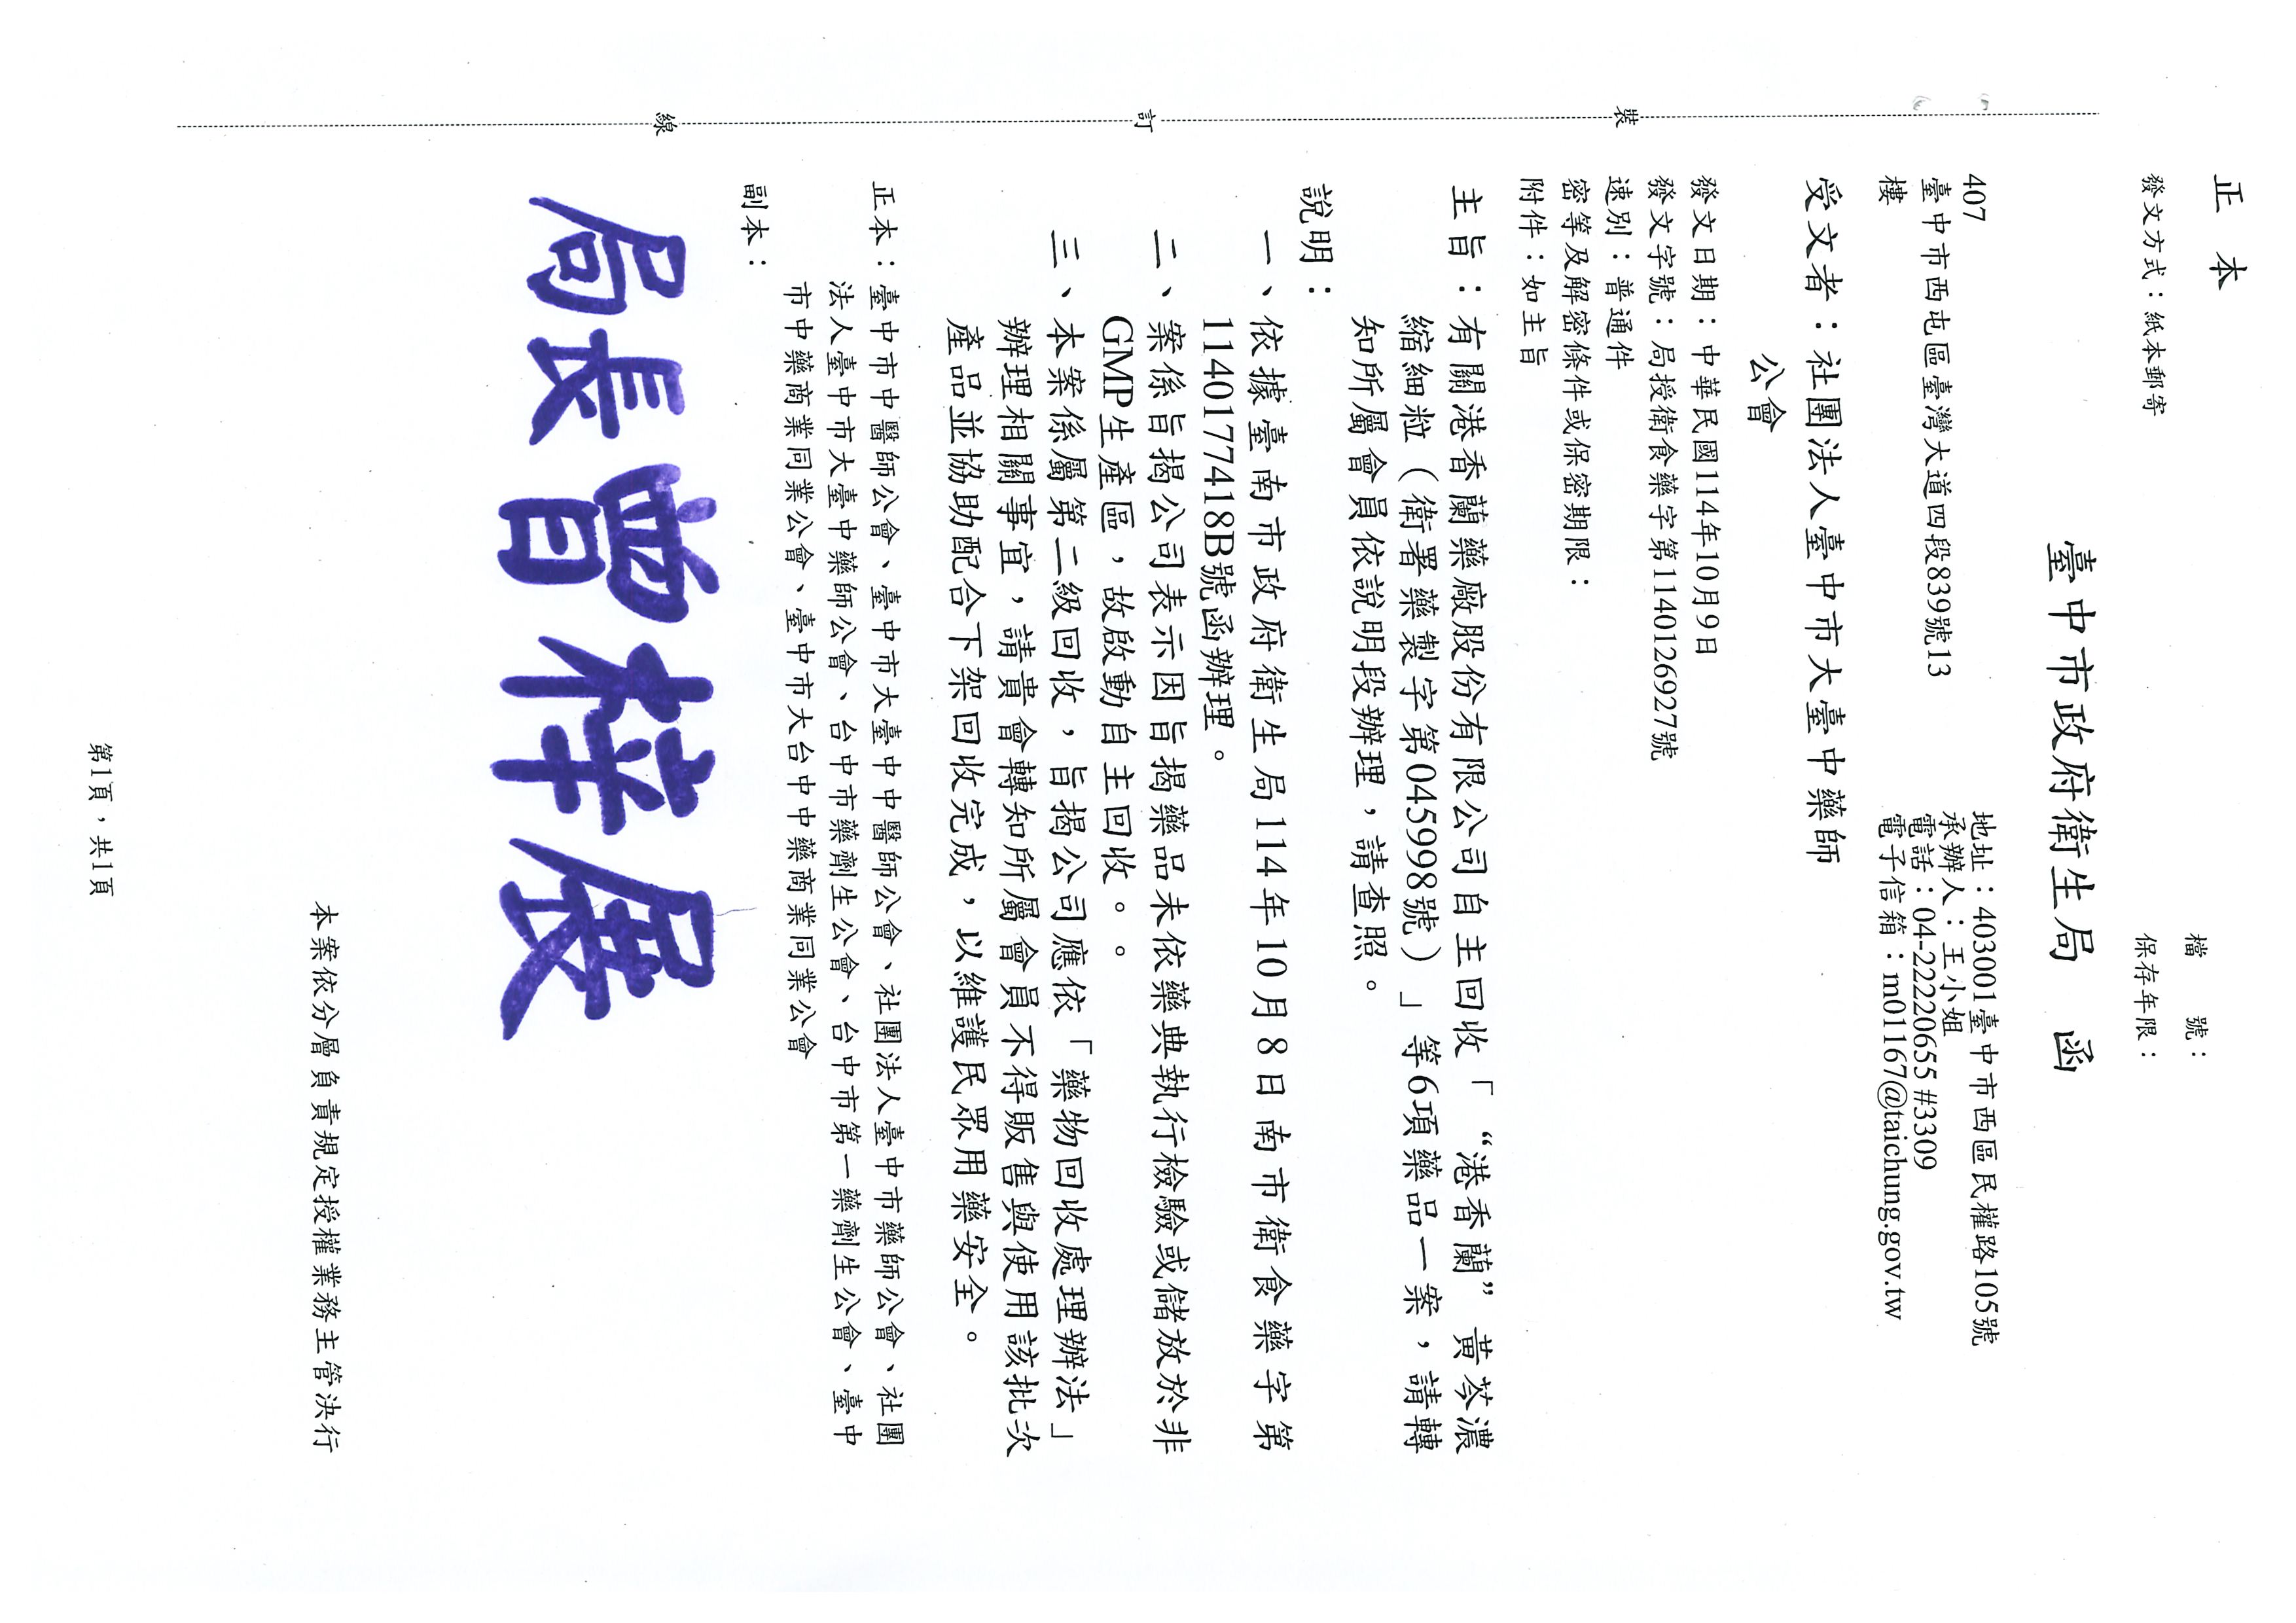 正本
檔　　號：
保存年限：
發文方式：紙本郵寄
臺中市政府衛生局　函
地址：403001臺中市西區民權路105號
承辦人：王小姐
電話：04-22220655 #3309
電子信箱：m01167@taichung.gov.tw
407
臺中市西屯區臺灣大道四段839號13
樓
受文者：社團法人臺中市大臺中藥師
公會
發文日期：中華民國114年10月9日
發文字號：局授衛食藥字第1140126927號
速別：普通件
密等及解密條件或保密期限：
附件：如主旨
主旨：有關港香蘭藥廠股份有限公司自主回收「 “港香蘭” 黃芩濃
縮細粒（衛署藥製字第045998號）」等6項藥品一案，請轉
知所屬會員依說明段辦理，請查照。
說明：
一、依據臺南市政府衛生局114年10月8日南市衛食藥字第
1140177418B號函辦理。
二、案係旨揭公司表示因旨揭藥品未依藥典執行檢驗或儲放於非
GMP生產區，故啟動自主回收。。
三、本案係屬第二級回收，旨揭公司應依「藥物回收處理辦法」
辦理相關事宜，請貴會轉知所屬會員不得販售與使用該批次
產品並協助配合下架回收完成，以維護民眾用藥安全。
正本：臺中市中醫師公會、臺中市大臺中中醫師公會、社團法人臺中市藥師公會、社團
法人臺中市大臺中藥師公會、台中市藥劑生公會、台中市第一藥劑生公會、臺中
市中藥商業同業公會、臺中市大台中中藥商業同業公會
副本：
局長曾梓展
本案依分層負責規定授權業務主管決行
第1頁，共1頁
裝
訂
線